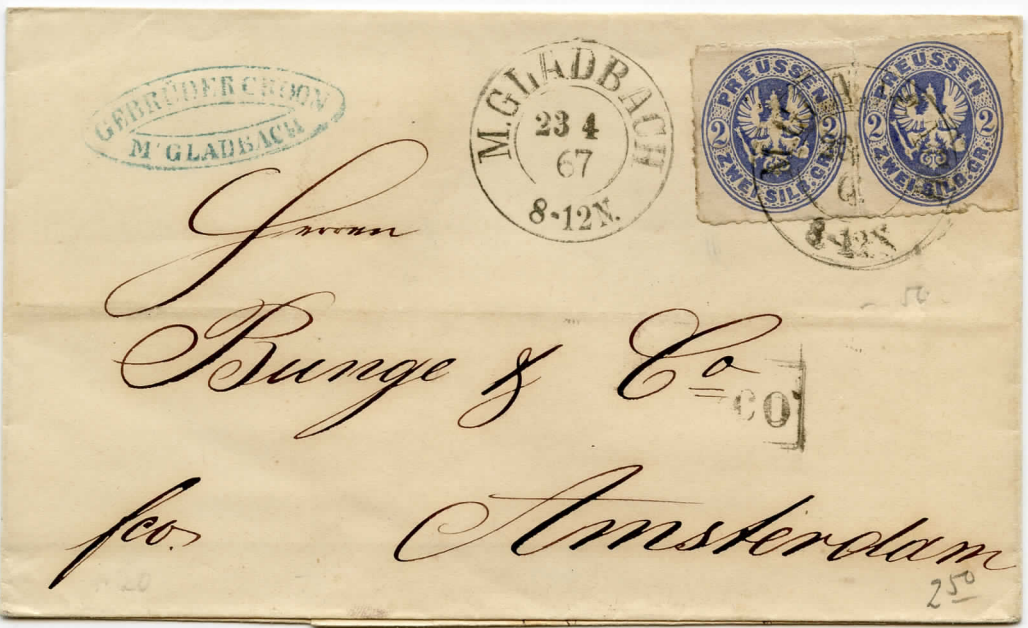 GEBRÜDER CROON
M'GLADBACH
M.GLADBACH
23 4
67
8-12N.
PREUSSEN
2 2
ZWEI SILB.GR.
PREUSSEN
2 2
ZWEI SILB.GR.
8-12N
Herren
50
Bunge & Co
CO
fco.
Amsterdam
20
2 50